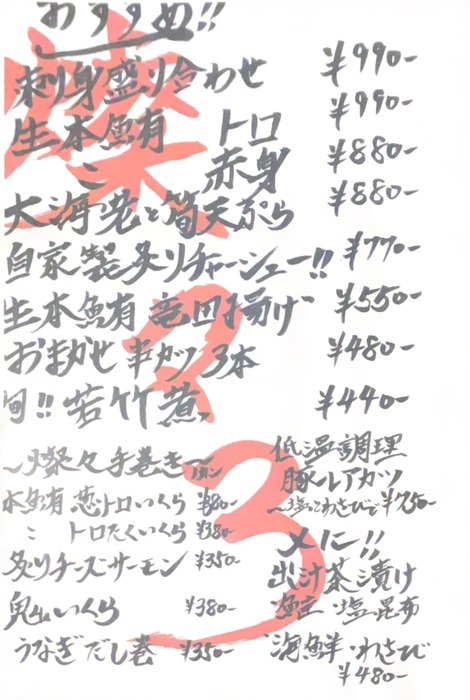 おすすめ!!
刺身盛り合わせ ¥990-
生本鮪 トロ ¥990-
〃 赤身 ¥880-
大海老と筍天ぷら ¥880-
自家製炙りチャーシュー!! ¥770-
生本鮪竜田揚げ ¥550-
おまかせ串カツ 3本 ¥480-
旬!! 若竹煮 ¥440-
〜燦々手巻き〜
本鮪 葱トロいくら ¥380-
〃 トロたくいくら ¥380-
炙りチーズサーモン ¥350-
いくら ¥380-
うなぎだし巻 ¥350-
低温調理
豚レアカツ
〜塩とわさびで ¥750-
〆に!!
出汁茶漬け
・塩昆布
海鮮・わさび
¥480-
燦々
3